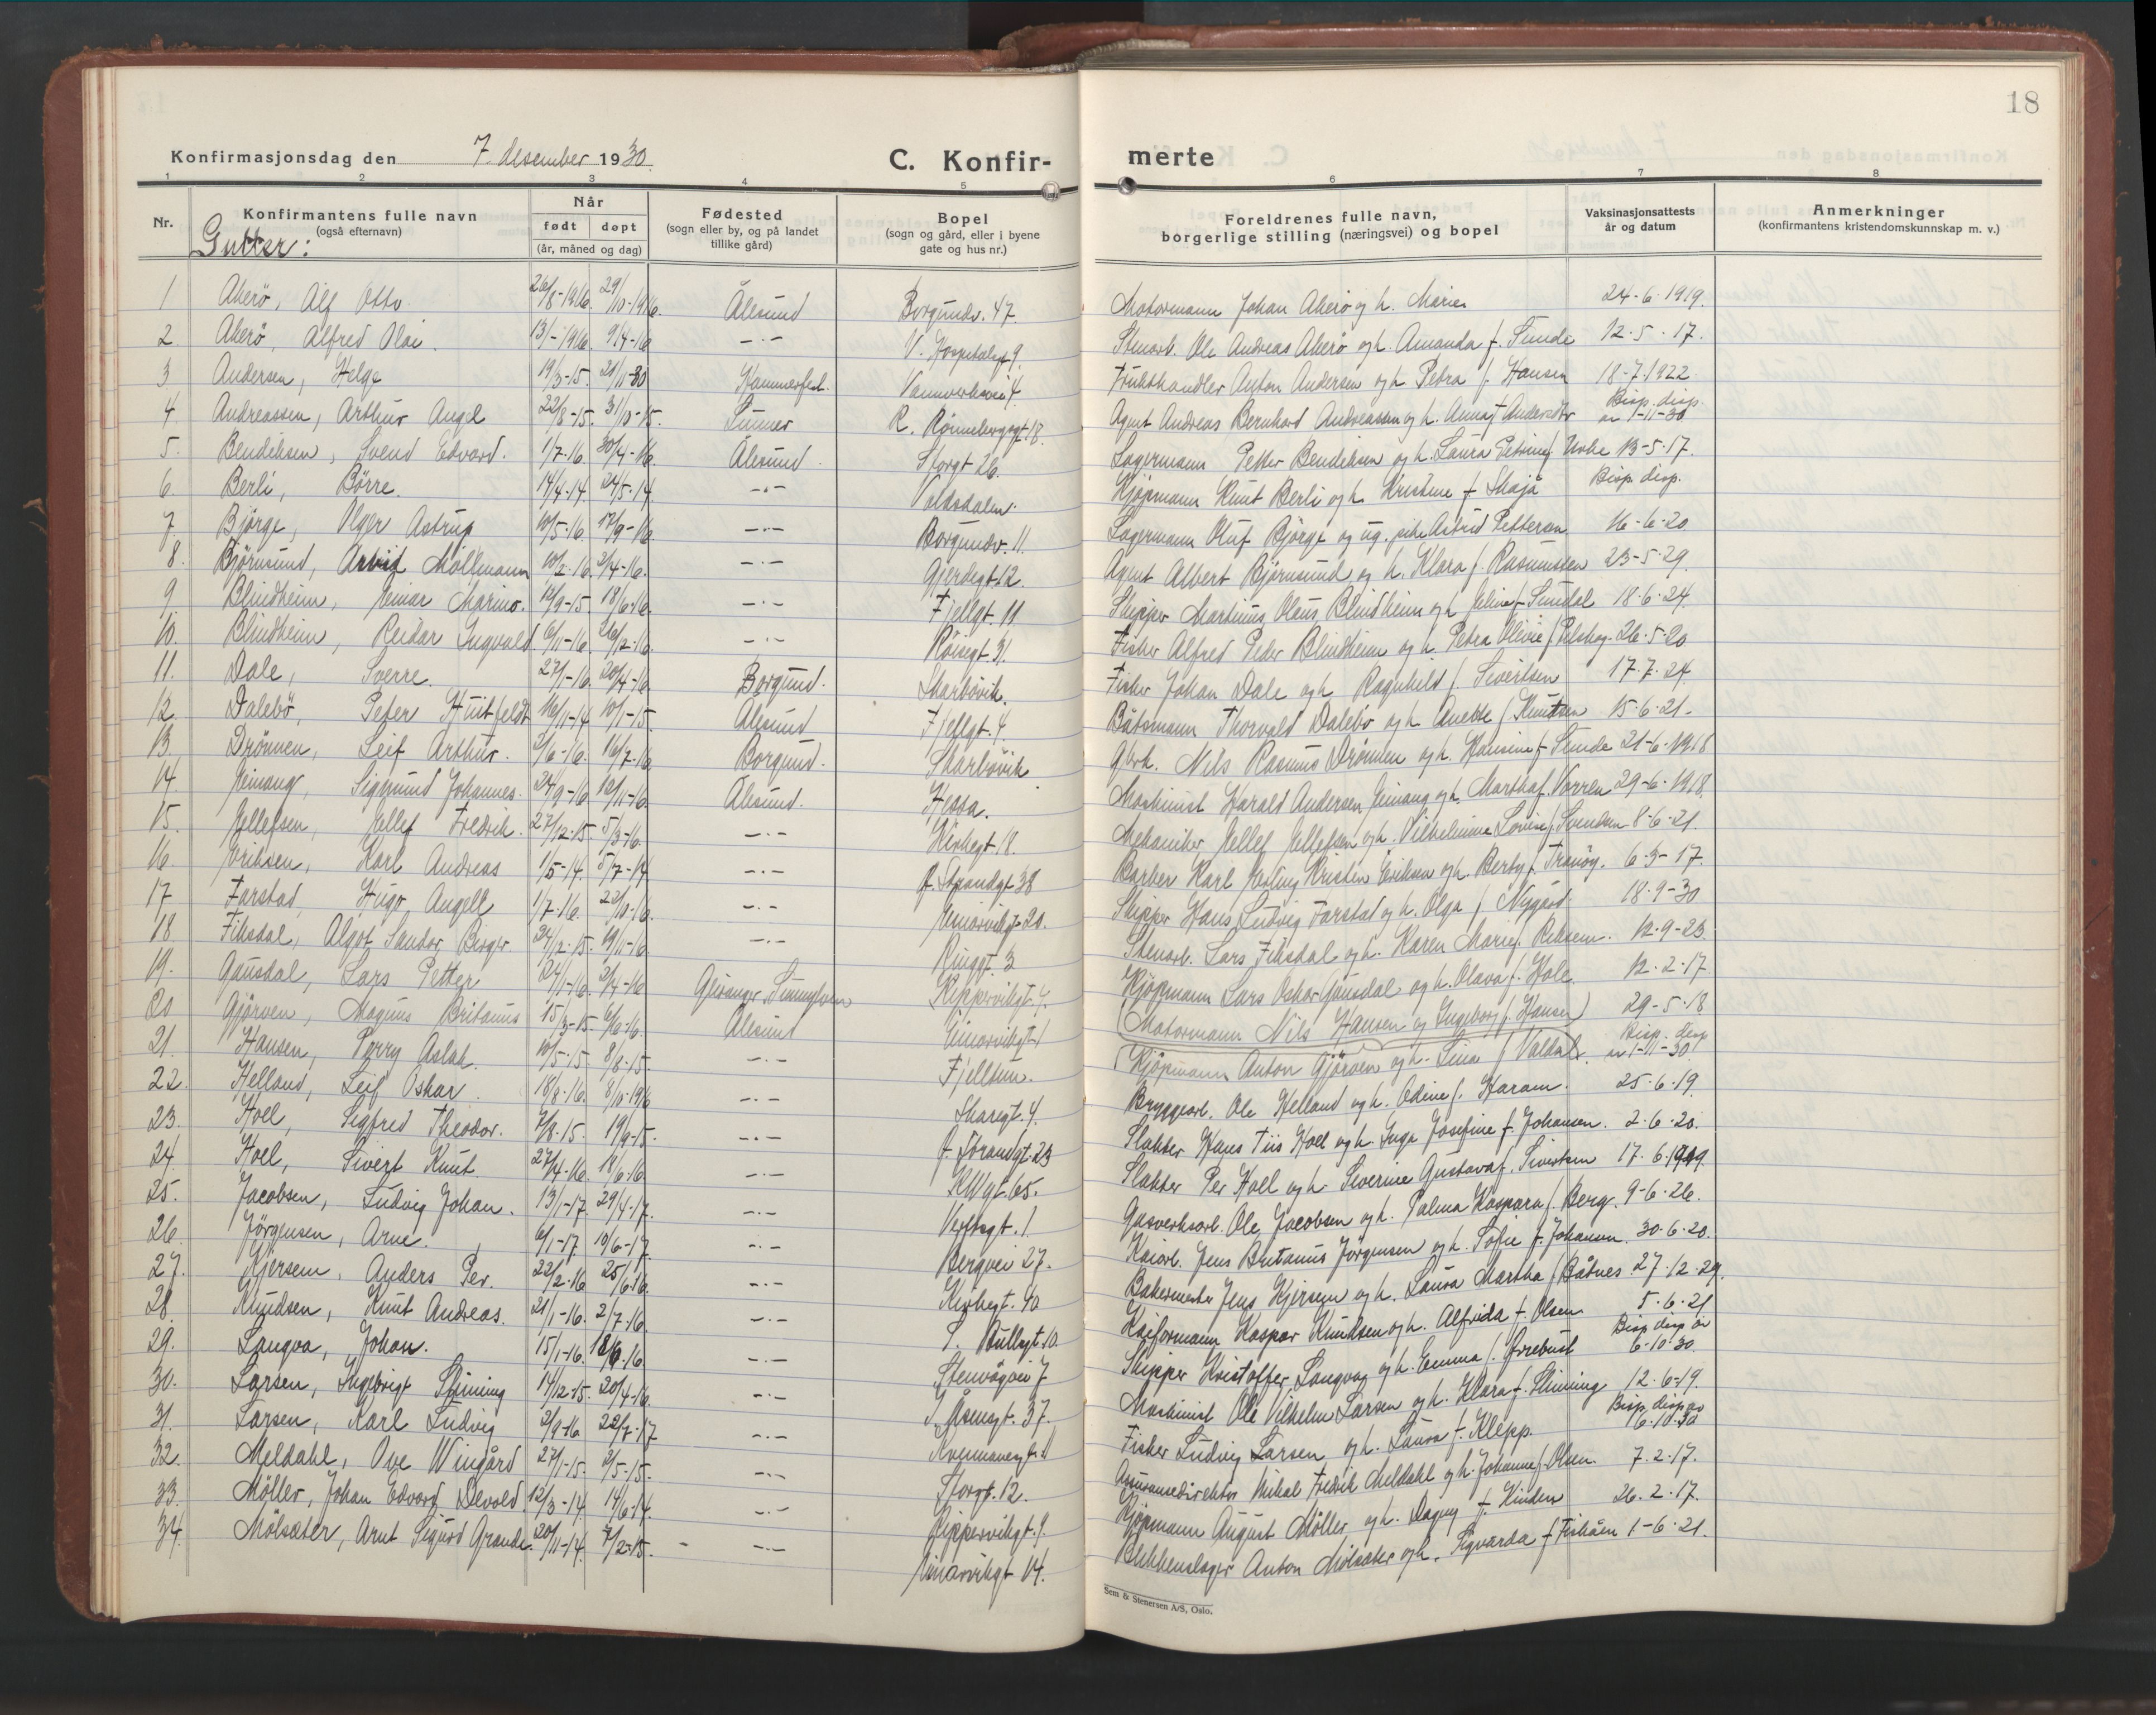 18
Konfirmasjonsdag den 7 desember 1930. C. Konfir-merte
1 2 3 4 5 6 7 8
Nr. Konfirmantens fulle navn (også efternavn) Når født døpt (år, måned og dag) Fødested (sogn eller by, og på landet tillike gård) Bopel (sogn og gård, eller i byene gate og hus nr.) Foreldrenes fulle navn, borgerlige stilling (næringsvei) og bopel Vaksinasjonsattests år og datum Anmerkninger (konfirmantens kristendomskunnskap m. v.)
Gutter:
1 Akerö, Alf Otto 26/8-1916. 29/10-1916. Ålesund Borgundv. 47. Motormann Johan Akerö og h. Marie 24-6-1919.
2 Akerö, Alfred Olai. 13/1-1916. 9/4-16 —·— V. Hospitalsgt 9. Stenarb. Ole Andreas Akerö og h. Amanda f. Sunde 12-5-17.
3 Andersen, Helge 19/3-15. 21/11-30 Hammerfest. Frukthandler Anton Andersen og h Petra f. Hansen 18-7-1922
4 Andreassen, Arthur Angel 22/8-15. 31/10-15. R. Rönnebergsgt 18. Agent Andreas Bernhard Andreassen og h. Anna f. Bisp. disp. av 1-11-30
5. Bendiksen, Svend Edvard. 1/7-16. 30/4-16. Ålesund. Storgt 26. Lagermann Petter Bendiksen og h. Laura Petrine f. 13-5-17.
6. Berli, Börre. 14/4-14. 24/5-14 —·— Voldsdalen. Kjöpmann Knut Berli og h. Kristine f. Bisp. disp.
7 Björge, Olger Astrup 10/5-16. 17/9-16 —·— Borgundv. 11. Lagermann Oluf Björge og ug. pike Astrid Pettersen 16-6-20
8. Björnsund, Arvid Möllmann 10/2-16. 2/4-16. —·— Gjerdegt. 12. Agent Albert Björnsund og h. Klara f. Rasmussen 23-5-29.
9 Blindheim, Einar Marino. 12/9-15. 18/6-16 —·— Fjellgt. 11 Skipper Martinus Olaus Blindheim og h Eline f. Sundal 18-6-24.
10. Blindheim, Reidar Ingvald 6/11-16. 26/12-16 —·— Röisegt. 31. Fisker Alfred Peder Blindheim og h. Petra Olivie f. 26-5-20
11. Dale, Sverre. 27/1-16. 20/4-16 Borgund. Skarbövik. Fisker Johan Dale og h Ragnhild f. Sivertsen 17-7-24
12. Dalebö, Peter Huitfeldt 16/11-14 10/1-15. Ålesund Fjellgt. 4. Båtsmann Thorvald Dalebö og h Anette f. Knutsen 15-6-21.
13. Drönnen, Leif Arthur. 2/6-16. 16/7-16 Borgund. Skarbövik Nils Rasmus Drönnen og h. Hansine f. Sunde 21-6-1918
14. Einang, Sigmund Johannes. 24/9-16 12/11-16. Ålesund. Hessa. Maskinist Harald Andersen Einang og h. Martha f. Vorren 29-6-1918.
15. Ellefsen, Ellef Fredrik. 27/12-15. 5/3-16. —·— Kirkegt. 18. Mekaniker Ellef Ellefsen og h. Vilhelmine Lovise f. Svendsen 8-6-21.
16. Eriksen, Karl Andreas 1/5-14. 5/7-14 —·— Strandgt 38 Barber Karl Erling Kristen Eriksen og h. Berby f. Tranöy. 6-3-17.
17 Farstad, Hugo Angell 1/7-16. 22/10-16. —·— Einarvikgt. 20. Skipper Hans Ludvig Farstad og h. Olga f. Nygård. 18-9-30
18. Fiksdal, Algot Sandor Birger 24/12-15. 19/11-16. —·— Ringgt. 3 Stenarb. Lars Fiksdal og h. Karen Marie f. 12-9-23.
19. Gausdal, Lars Petter 24/1-16. 2/4-16 Geiranger, Sunnylven Kippervikgt. 4. Kjöpmann Lars Oskar Gausdal og h. Olava f. Hole. 12-2-17
20 Gjörven, Magnus Britanus 15/3-15. 6/6-16. Ålesund Einarvikgt. 1 (Motormann Nils Hansen og Ingeborg f. Hansen) 29-5-18
21. Hansen, Perry Aslak. 10/5-15. 8/8-15. —·— Fjelltun. (Kjöpmann Anton Gjörven og h. Lina f. Valdal. Bisp. disp av 1-11-30.
22. Helland, Leif Oskar. 18/8-16. 8/10-1916 —·— Skaregt. 4. Bryggearb. Ole Helland og h. Odine f. Haram. 25-6-19.
23. Hoel, Sigfred Theodor. 7/8-15. 19/9-15. —·— Strandgt. 23 Slakter Hans Tiis Hoel og h. Inga Josefine f. Johansen. 2-6-20.
24. Hoel, Sivert Knut 27/4-16. 18/6-16 —·— Slakter Per Hoel og h. Severine Gustava f. Sivertsen 17-6-1919.
25. Jacobsen, Ludvig Johan. 13/1-17. 29/4-17. —·— Verftsgt. 1. Gasverksarb. Ole Jacobsen og h. Palma Kaspara f. Berg. 9-6-26.
26. Jörgensen, Arne. 6/1-17 10/6-17. —·— Bergvei 27. Kaiarb. Jens Britanus Jörgensen og h. Sofie f. Johansen. 30-6-20.
27. Kjersem, Anders Per. 22/2-16 25/6-16. —·— Kirkegt. 40 Bakermester Jens Kjersem og h. Laura Martha f. Båtnes. 27-12-29.
28. Knudsen, Knut Andreas. 21/1-16. 2/7-16. —·— Kaiformann Kaspar Knudsen og h. Alfrida f. Olsen 5-6-21
29. Langva, Johan. 15/1-16. 18/6-16 —·— Stenvågvei 7 Skipper Kristoffer Langva og h. Emma f. Bisp. disp av 6-10-30.
30. Larsen, Ingebrigt Slinning 14/12-15. 20/4-16. —·— Maskinist Ole Vilhelm Larsen og h. Klara f. Slinning 12-6-19.
31. Larsen, Karl Ludvig 2/9-16 22/7-17 —·— Fisker Ludvig Larsen og h. Laura f. Klepp. Bisp. disp av 6-10-30
32. Meldahl, Ove Wingård 27/1-15. 2/5-15. —·— Storgt. 12. Assuransedirektör Mikal Fredrik Meldahl og h. Johanne f. Olsen. 7-2-17.
33. Möller, Johan Edvard Devold 12/3-14. 14/6-14. —·— Kippervikgt. 9. Kjöpmann August Möller og h. Dagny f. 26-2-17.
34. Mölsæter, Arnt Sigurd Grande. 20/11-14. 7/2-15. —·— Einarvikgt 14. Blikkenslager Anton Mölsæter og h. Sigvarda f. Fiskåen 1-6-21.
Sem & Stenersen A/S, Oslo.